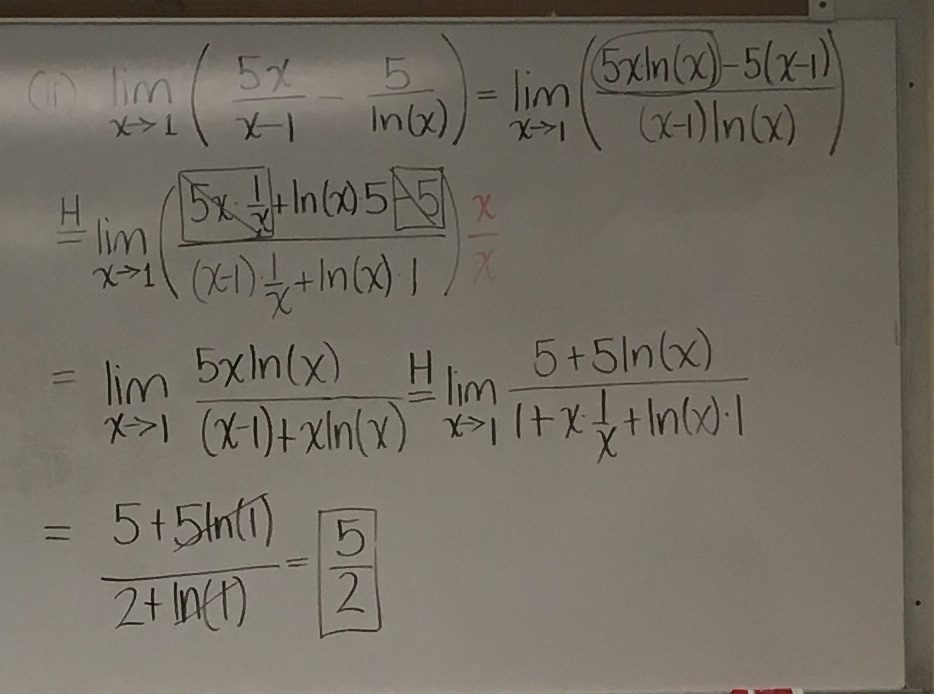 (ii) lim x→1 ( 5x/(x-1) - 5/ln(x) ) = lim x→1 ( (5xln(x) - 5(x-1)) / ((x-1)ln(x)) )
H= lim x→1 ( (5x·1/x + ln(x)·5 - 5) / ((x-1)·1/x + ln(x)·1) ) x/x
= lim x→1 5xln(x) / ((x-1)+xln(x)) H= lim x→1 (5+5ln(x)) / (1+x·1/x+ln(x)·1)
= (5+5ln(1)) / (2+ln(1)) = 5/2